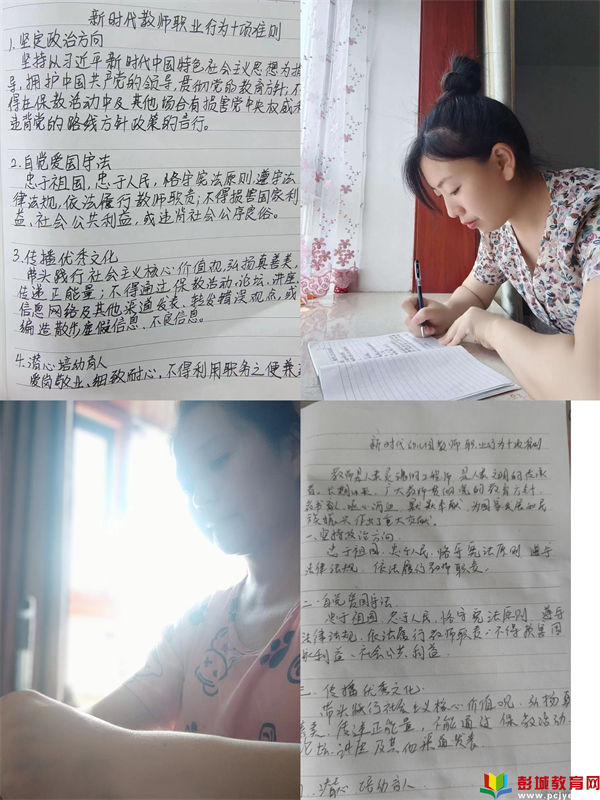 新时代教师职业行为十项准则
1.坚定政治方向
坚持从习近平新时代中国特色社会主义思想为指
导,拥护中国共产党的领导,贯彻党的教育方针;不
得在保教活动中及其他场合有损害党中央权威和
违背党的路线方针政策的言行。
2.自觉爱国守法
忠于祖国,忠于人民,恪守宪法原则,遵守法
律法规,依法履行教师职责;不得损害国家利
益、社会公共利益,或违背社会公序良俗。
3.传播优秀文化
带头践行社会主义核心价值观,弘扬真善美,
传递正能量;不得通过保教活动、论坛、讲座、
信息网络及其他渠道发表、转发错误观点,或
编造散步虚假信息、不良信息。
4.潜心培幼育人
爱岗敬业,细致耐心,不得利用职务之便兼
新时代幼儿园教师职业行为十项准则
教师是人类灵魂的工程师 是人类文明的传承
者。长期以来,广大教师贯彻党的教育方针
教书育人,默默奉献,为国家发展和民
族振兴作出了重大贡献。
一、坚持政治方向.
忠于祖国,忠于人民,恪守宪法原则 遵守
法律法规 依法履行教师职责.
二.自觉爱国守法.
忠于祖国,忠于人民,恪守宪法原则 遵守
法律法规,依法履行教师职责;不得损害国
家利益、社会公共利益.
三.传播优秀文化.
带头践行社会主义核心价值观,弘扬真
善美,传递正能量,不能通过保教活动.
论坛、讲座及其他渠道发表
潜心培幼育人
彭城教育网
www.pcjye.com